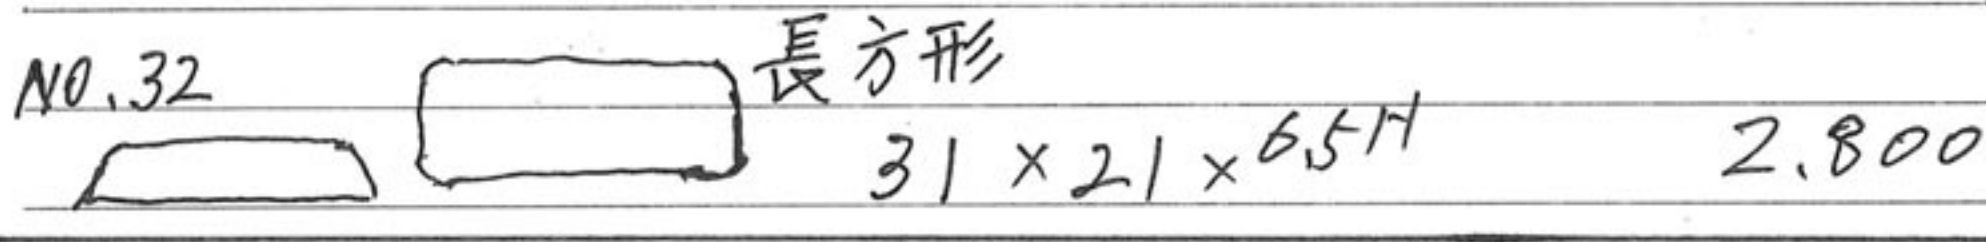 NO.32 長方形
31 × 21 × 6.5H 2.800